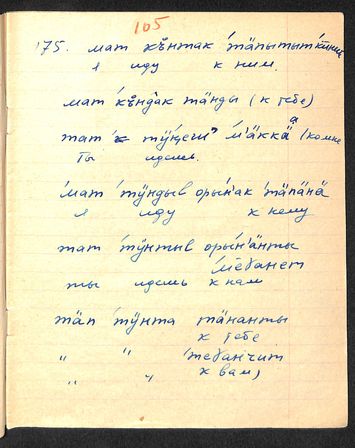 105
175. мат къ̊нтак 'тäпытыт'киние
я иду к ним.
мат 'къ̊ндак тäнды (к тебе)
тат тӱ̣ӈеш? 'мäккä (ко мне
ты идешь.
'мат 'тӱндыв орын'ак 'тäпäнä
я иду к нему
тат 'тӱнтыв оры'н'äнты
'мëɣанет
ты идешь к нам
тäп 'тӱнта тäнанты
к тебе
" " 'теɣанчит
" " к вам,